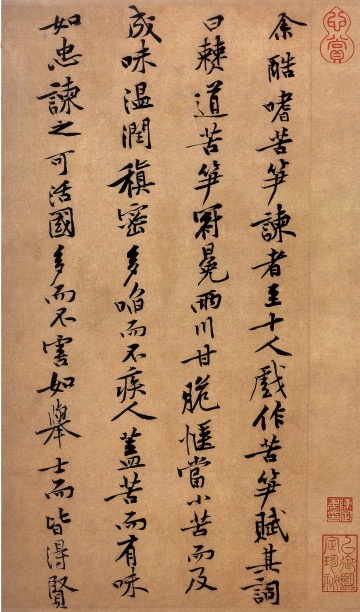 余酷嗜苦笋諫者至十人戲作苦笋賦其詞
曰僰道苦笋冠冕兩川甘脆愜當小苦而及
成味温潤稹密多啗而不疾人蓋苦而有味
如忠諫之可活國多而不害如舉士而皆得賢